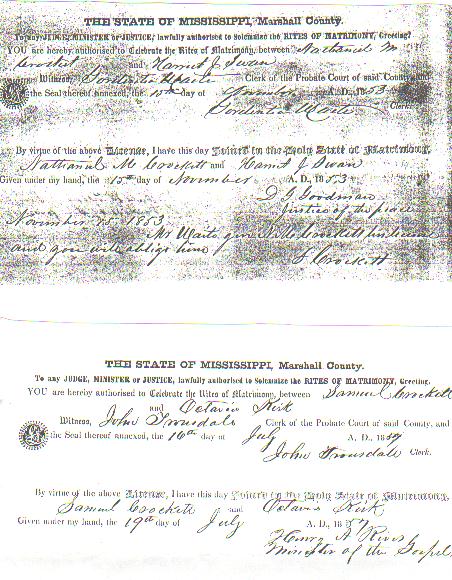 THE STATE OF MISSISSIPPI, Marshall County.
To any JUDGE, MINISTER or JUSTICE, lawfully authorised to Solemnize the RITES OF MATRIMONY, Greeting:
YOU are hereby authorised to Celebrate the Rites of Matrimony, between Nathaniel M
Crockett and Harriet J Swan
Witness, Clerk of the Probate Court of said County, and
the Seal thereof annexed, the 15th day of November A. D., 1853
Clerk.
By virtue of the above License, I have this day Joined in the Holy State of Matrimony,
Nathaniel M Crockett and Harriet J Swan
Given under my hand, the 15th day of November A. D., 1853
Goodman
Justice of the peace
November 1853
Mr Waite give N M Crockett his licens
and you will oblige him
Crockett
THE STATE OF MISSISSIPPI, Marshall County.
To any JUDGE, MINISTER or JUSTICE, lawfully authorised to Solemnize the RITES OF MATRIMONY, Greeting.
YOU are hereby authorised to Celebrate the Rites of Matrimony, between Samuel Crockett
and Octavia Kirk
Witness, John Trousdale Clerk of the Probate Court of said County, and
the Seal thereof annexed, the 16th day of July A. D., 1857
John Trousdale Clerk.
By virtue of the above License, I have this day Joined in the Holy State of Matrimony,
Samuel Crockett and Octavia Kirk
Given under my hand, the 19th day of July A. D., 1857
Henry A Rives
Minister of the Gospel